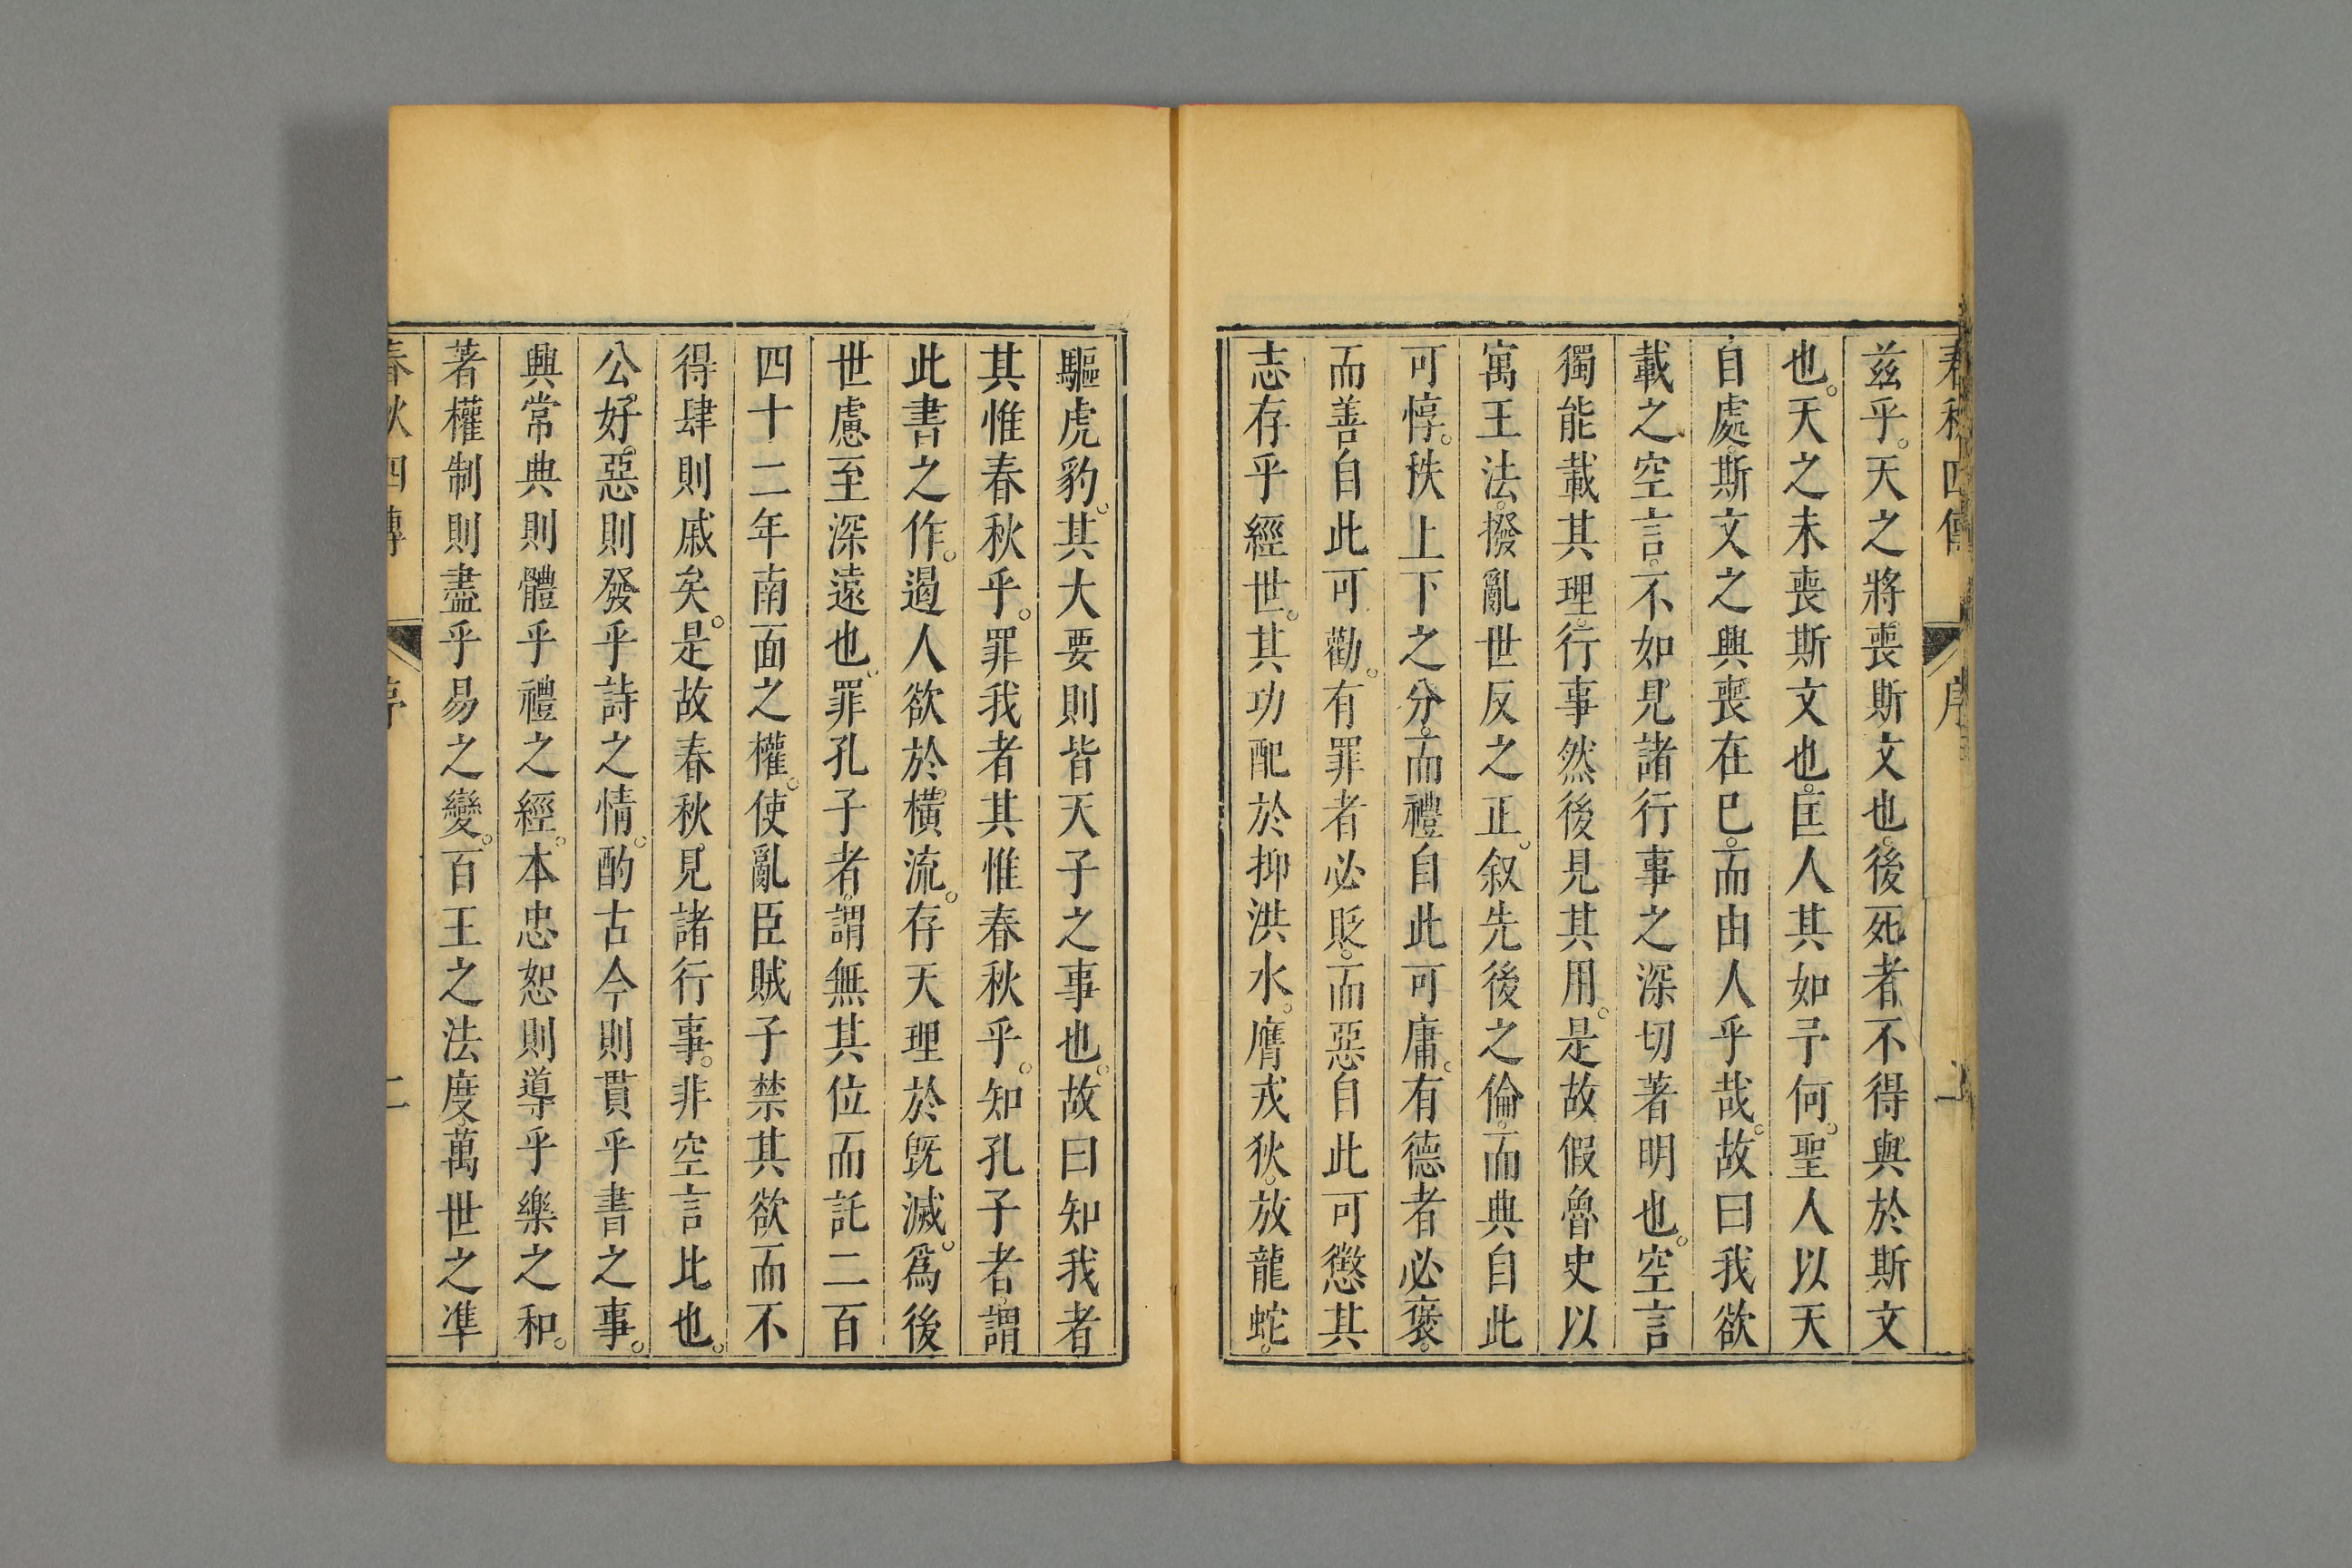 春秋四傳 序 二
兹乎。天之將喪斯文也。後死者不得與於斯文
也。天之未喪斯文也。匡人其如予何。聖人以天
自處。斯文之興喪在已。而由人乎哉。故曰我欲
載之空言。不如見諸行事之深切著明也。空言
獨能載其理。行事然後見其用。是故假魯史以
寓王法。撥亂世反之正。叙先後之倫。而典自此
可惇。秩上下之分。而禮自此可庸。有德者必褒。
而善自此可勸。有罪者必貶。而惡自此可懲其
志存乎經世。其功配於抑洪水。膺戎狄。放龍蛇。
驅虎豹。其大要則皆天子之事也。故曰知我者
其惟春秋乎。罪我者其惟春秋乎。知孔子者。謂
此書之作。遏人欲於橫流。存天理於旣滅。爲後
世慮至深遠也。罪孔子者。謂無其位而託二百
四十二年南面之權。使亂臣賊子禁其欲而不
得肆則戚矣。是故春秋見諸行事。非空言比也。
公好。惡則發乎詩之情。酌古今則貫乎書之事。
興常典則體乎禮之經。本忠恕則導乎樂之和。
著權制則盡乎易之變。百王之法度。萬世之準
春秋四傳 序 二